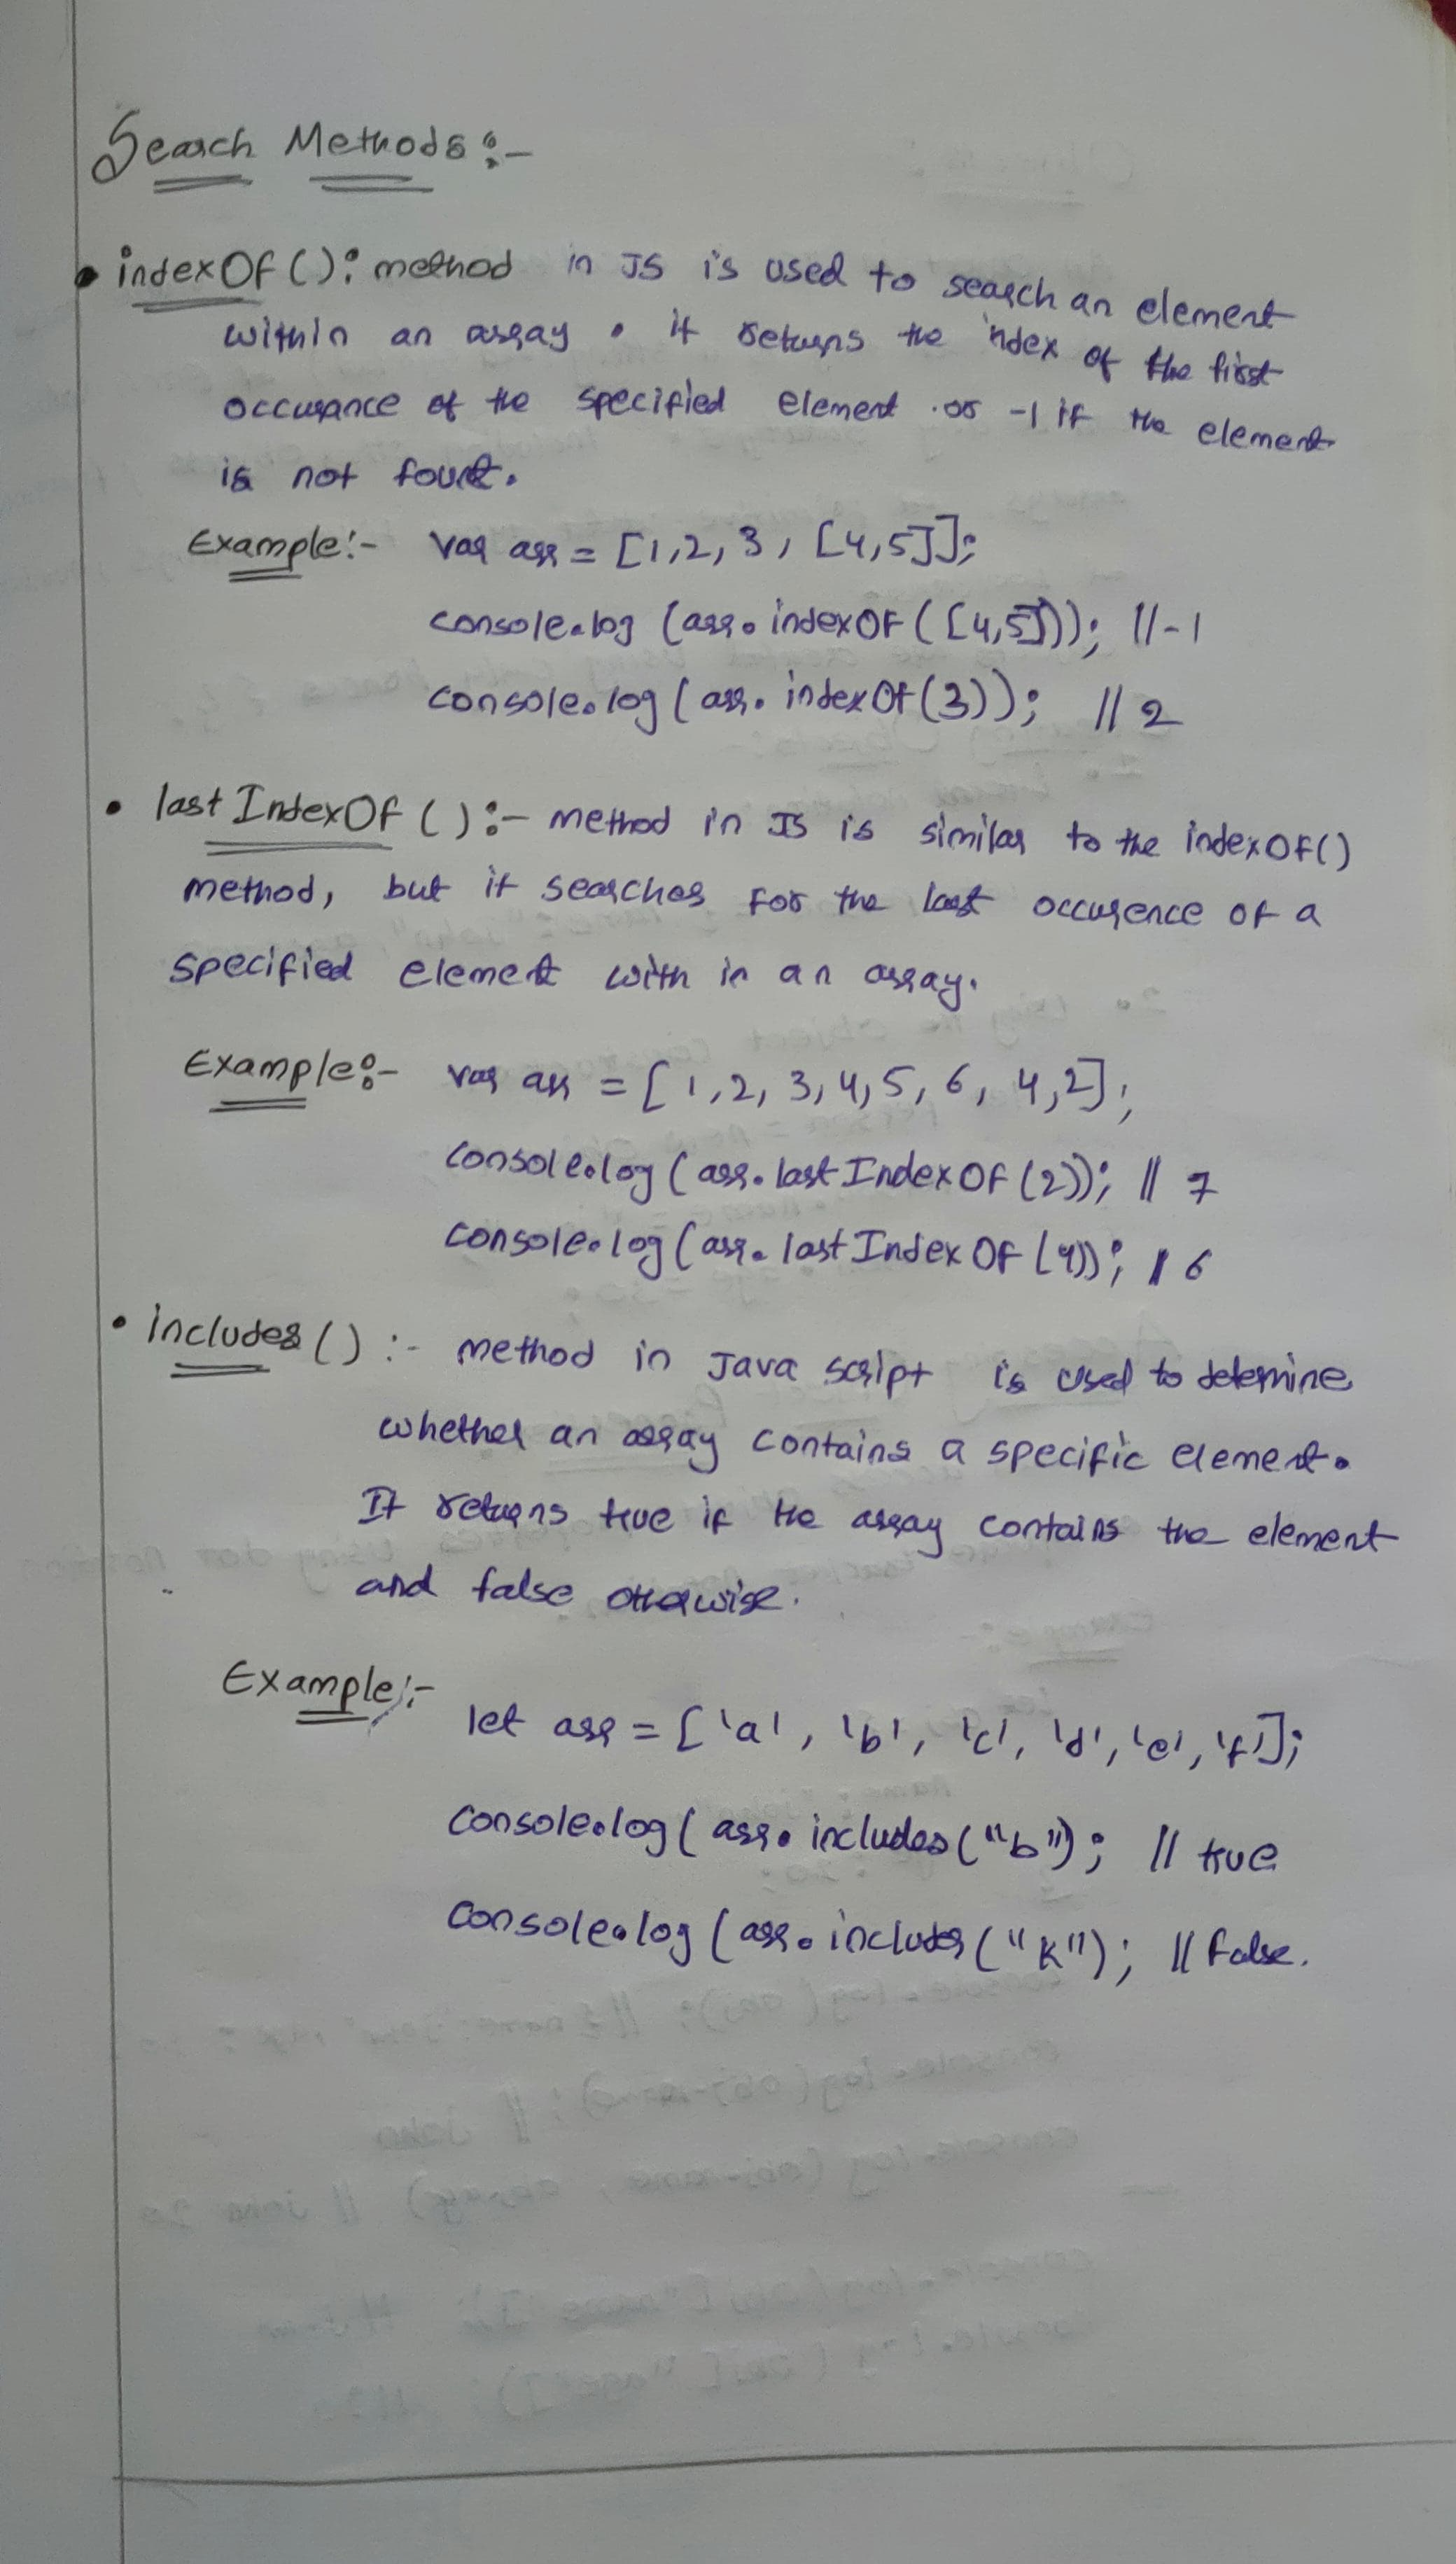 Search Methods :-
• indexOf() : method in JS is used to search an element
within an array . it returns the index of the first
occurance of the specified element . or -1 if the element
is not found.
Example :- var arr = [1,2,3, [4,5]];
console.log (arr.indexOf([4,5])); //-1
console.log (arr.indexOf(3)); // 2
• lastIndexOf() :- method in JS is similar to the indexOf()
method, but it searches for the last occurence of a
specified element with in an array.
Example :- var arr = [1,2,3,4,5,6,4,2];
console.log (arr.lastIndexOf(2)); // 7
console.log (arr.lastIndexOf(4)); // 6
• includes() :- method in Java script is used to determine
whether an array contains a specific element.
It returns true if the array contains the element
and false otherwise.
Example :-
let arr = ['a', 'b', 'c', 'd', 'e', 'f'];
console.log (arr.includes("b"); // true
console.log (arr.includes("k"); // false.